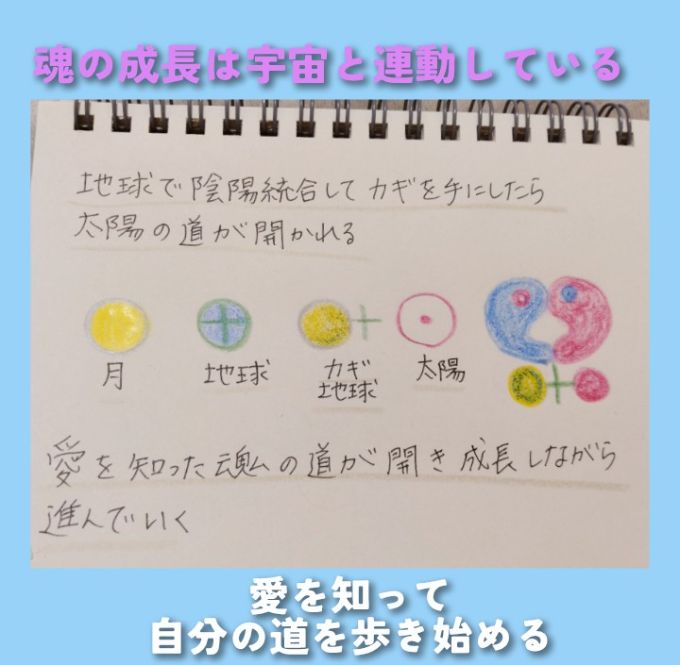 魂の成長は宇宙と連動している
地球で陰陽統合してカギを手にしたら
太陽の道が開かれる
月
地球
カギ
地球
太陽
愛を知った魂の道が開き成長しながら
進んでいく
愛を知って
自分の道を歩き始める